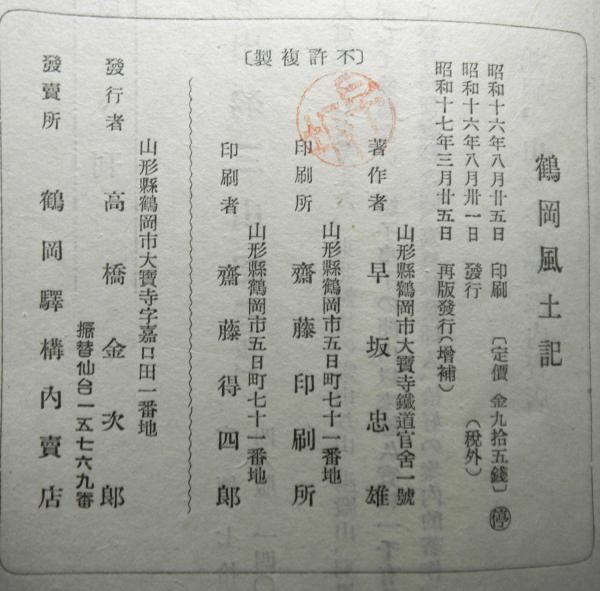 鶴岡風土記
昭和十六年八月廿五日 印刷 〔定價 金九拾五錢〕 停
昭和十六年八月卅一日 發行 (稅外)
昭和十七年三月廿五日 再版發行(增補)
〔不許複製〕
山形縣鶴岡市大寶寺鐵道官舍一號
著作者 早坂忠雄
山形縣鶴岡市五日町七十一番地
印刷所 齋藤印刷所
山形縣鶴岡市五日町七十一番地
印刷者 齋藤得四郎
山形縣鶴岡市大寶寺字嘉口田一番地
發行者 高橋金次郎
振替仙台一五七六九番
發賣所 鶴岡驛構內賣店